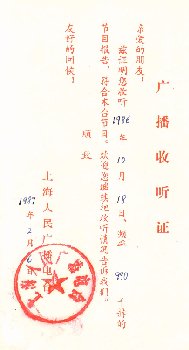 广播收听证
亲爱的朋友：
兹证明您收听 1986 年 12 月 18 日、频率 990 千赫的
节目报告，符合本台节目。欢迎您继续把收听情况告诉我们。
顺致
友好的问候！
上海人民广播电台
1987年2月6日